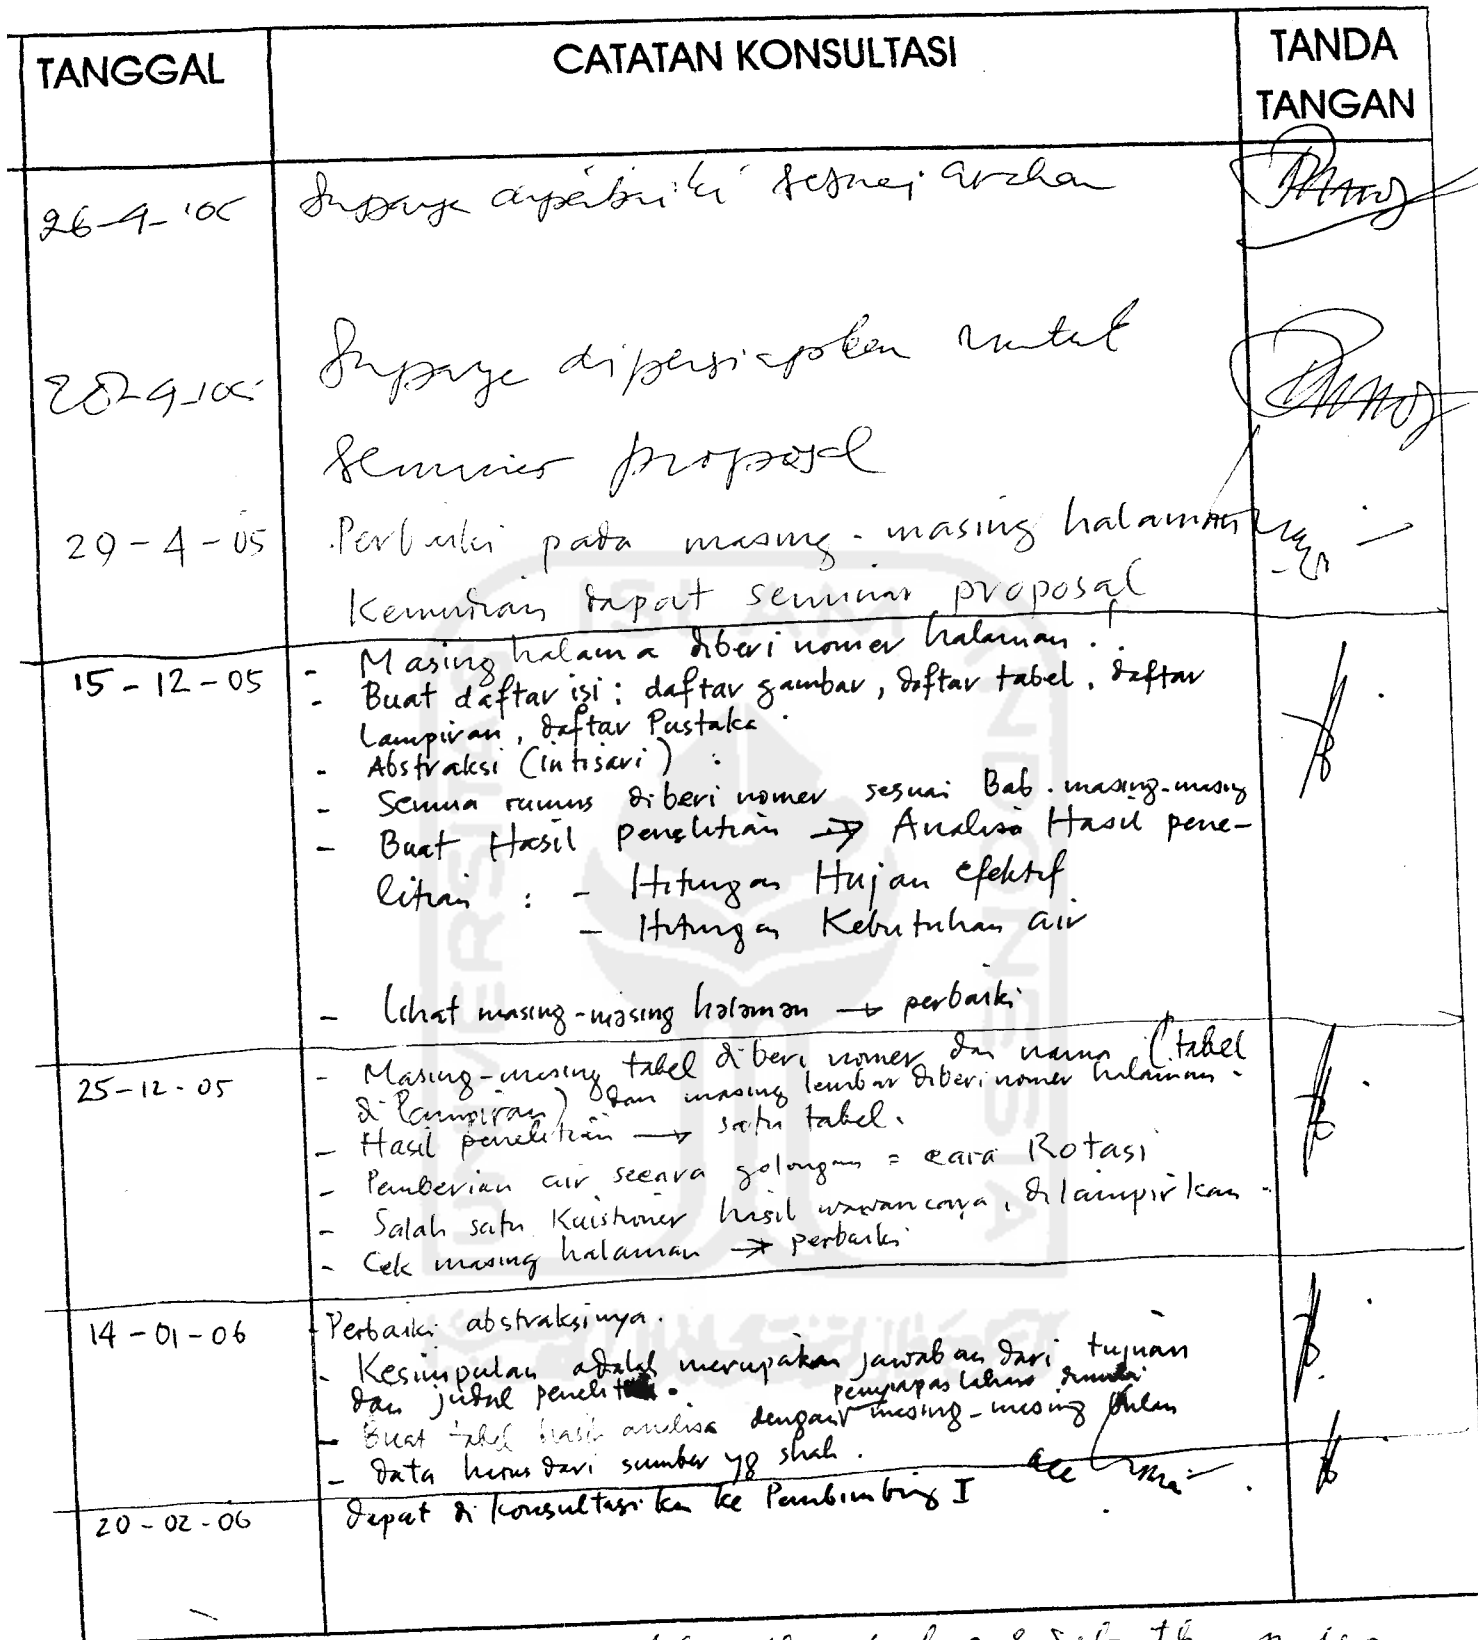 TANGGAL CATATAN KONSULTASI TANDA TANGAN
26-4-'05 Supaya diperbaiki sesuai arahan
28-4-'05 Supaya dipersiapkan untuk
seminar proposal
29-4-05 Perbaiki pada masing-masing halaman
Kemudian dapat seminar proposal
15-12-05 - Masing halama diberi nomer halaman.!
- Buat daftar isi: daftar gambar, daftar tabel, daftar
Lampiran, daftar Pustaka.
- Abstraksi (intisari) :
- Semua rumus diberi nomer sesuai Bab. masing-masing
- Buat Hasil penelitian → Analisa Hasil pene-
litian : - Hitungan Hujan efektif
- Hitungan Kebutuhan air
- Lihat masing-masing halaman → perbaiki
25-12-05 - Masing-masing tabel diberi nomer dan nama (tabel
di lampiran) dan masing lembar diberi nomer halaman.
- Hasil penelitian → satu tabel.
- Pemberian air secara golongan = cara Rotasi
- Salah satu Kuistioner hasil wawancara, dilampirkan.
- Cek masing halaman → perbaiki
14-01-06 - Perbaiki abstraksinya.
- Kesimpulan adalah merupakan jawaban dari tujuan
dan judul penelit
penyiapan lahan dimulai
- Buat tabel hasil analisa dengan masing-masing bulan
- data harus dari sumber yg shah.
20-02-06 dapat di konsultasikan ke Pembimbing I acc
UNIVERSITAS ISLAM INDONESIA